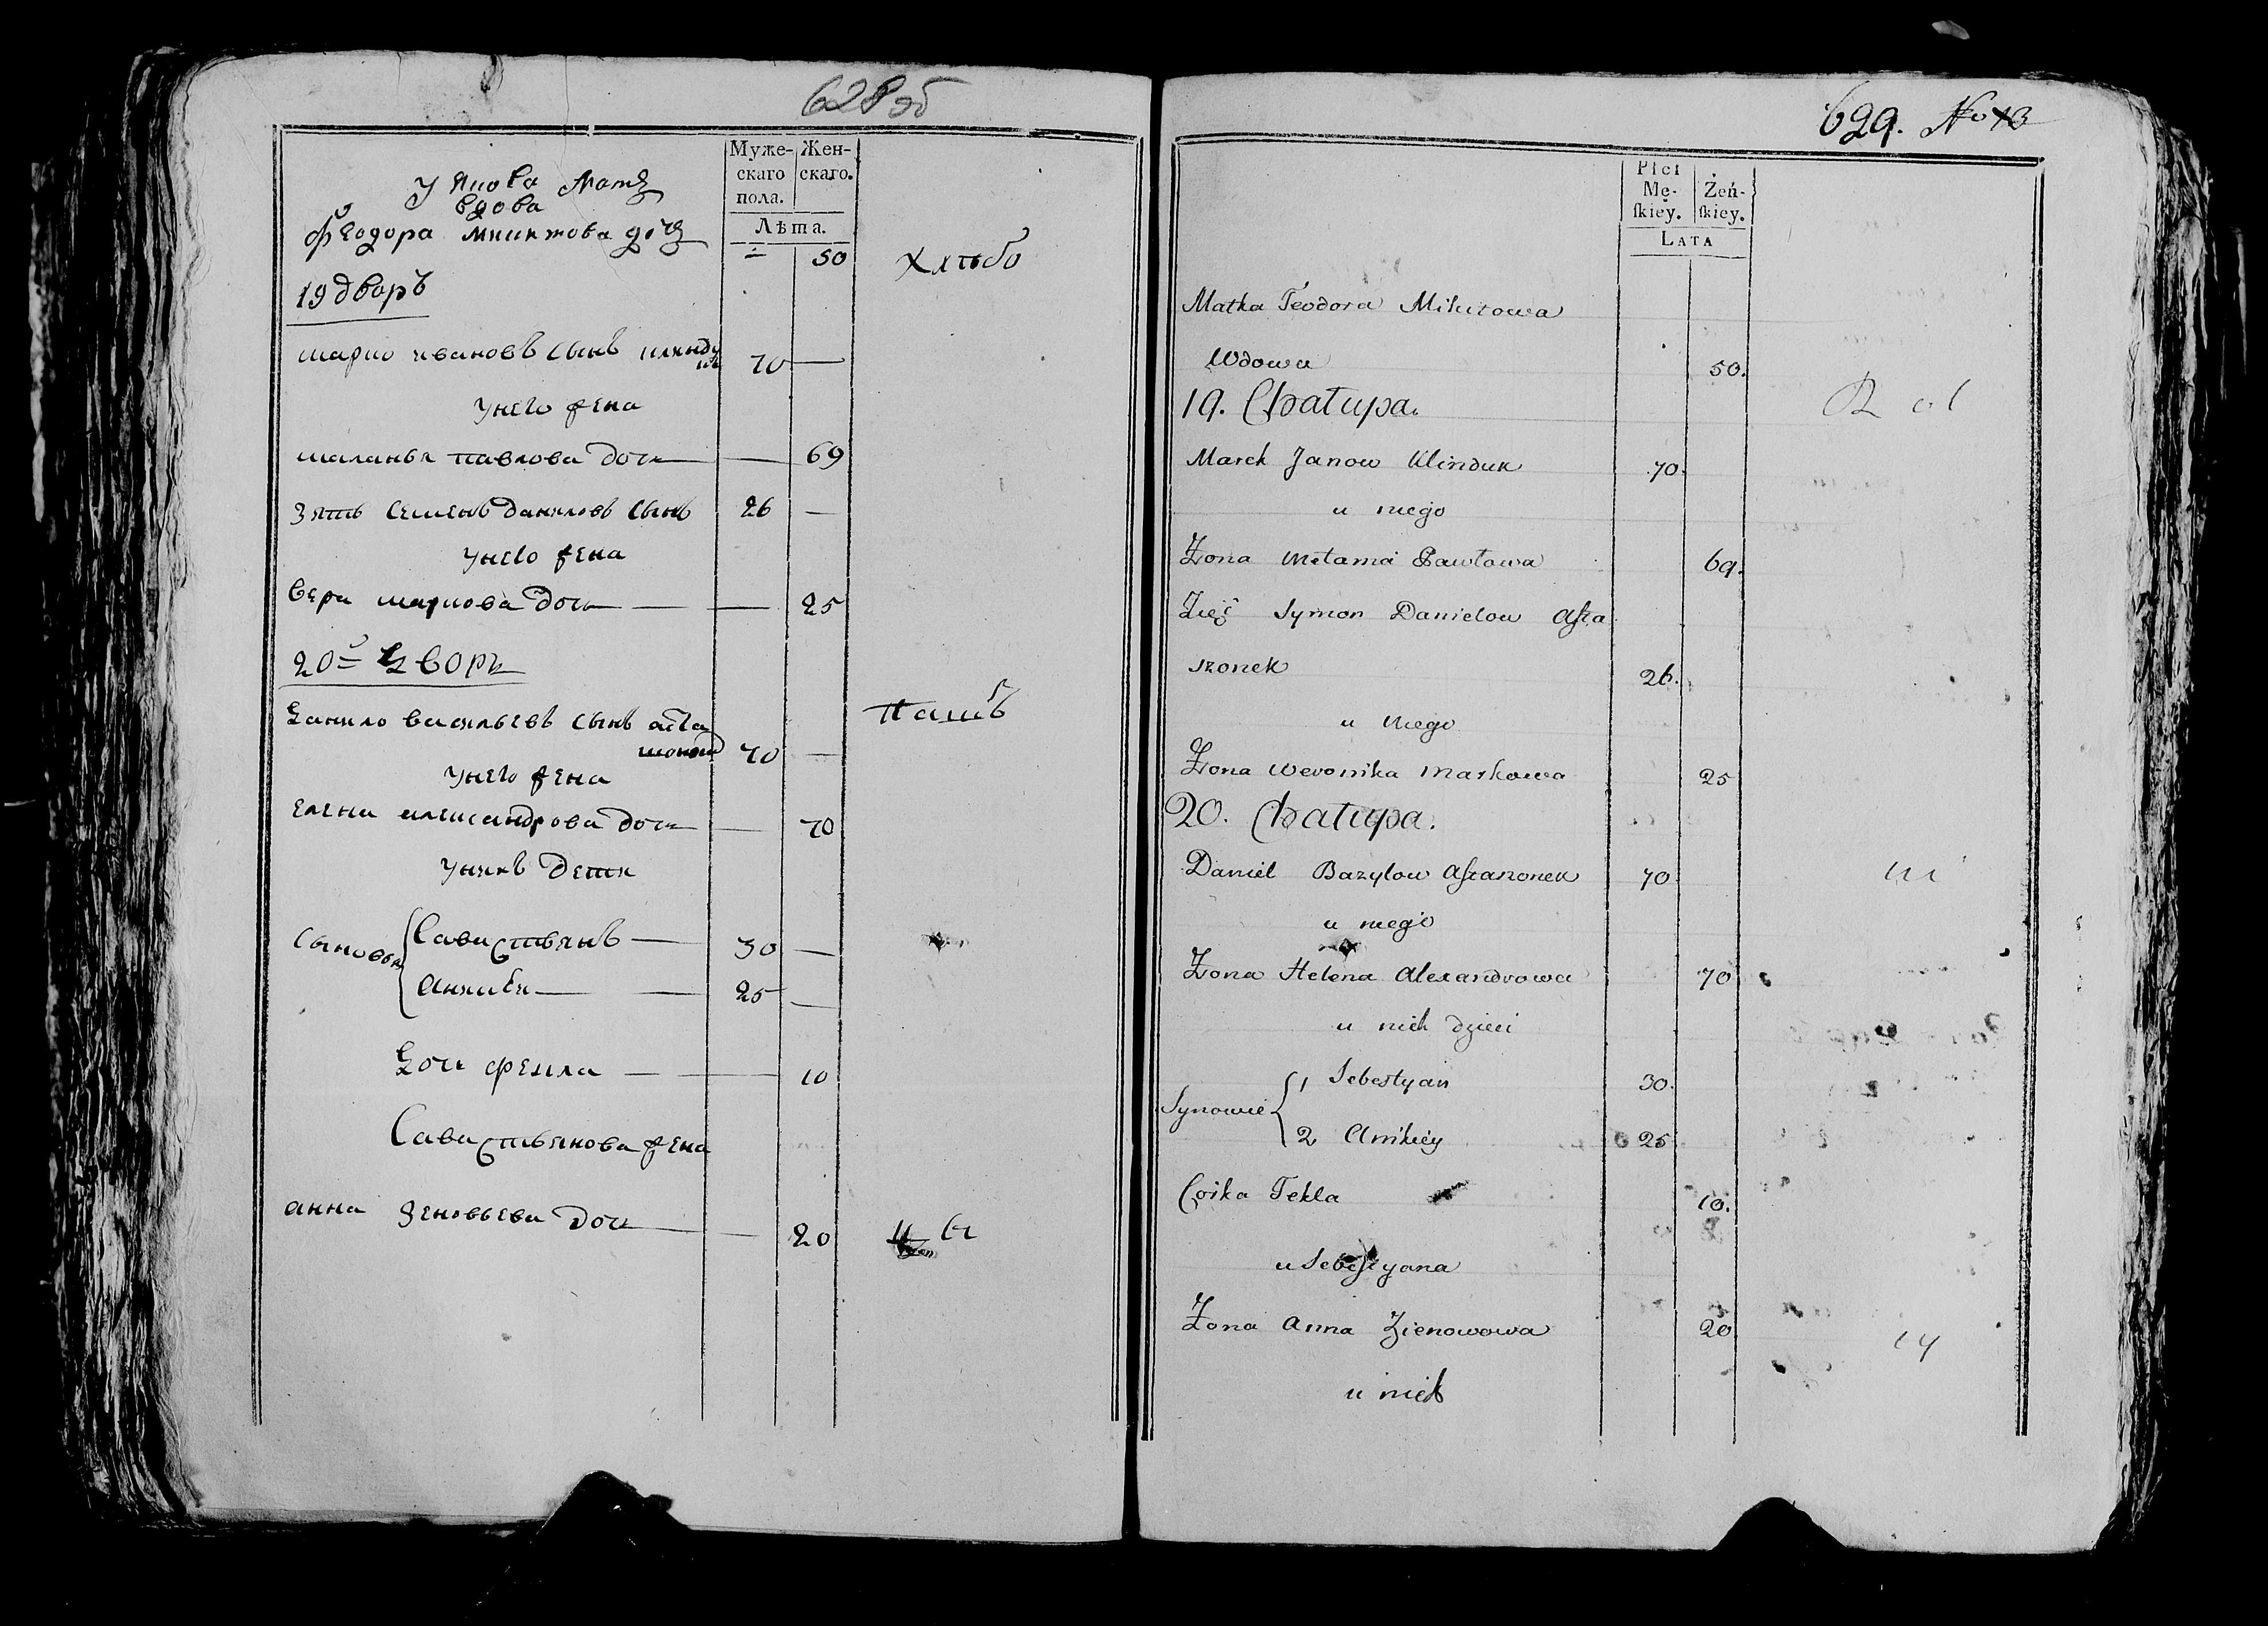 628 об
Муже-
скаго
пола.
Жен-
скаго.
Лѣта.
У Якова Мать
вдова
Феодора Микитова дочь 50
Хлѣбо
19 дворъ
Марко Ивановъ сынъ Клинду
къ 70 —
у него жена
Маланья Павлова дочь — 69
зять Семенъ Даниловъ сынъ 26 —
у него жена
Вера Маркова дочь — 25
20й дворъ
Данило Васильевъ сынъ Аста
шонокъ 70 —
Пашъ
у него жена
Елена Александрова дочь — 70
у нихъ дети
Сыновья Савастьянъ — 30 —
Аникей — 25 —
дочь Фекла — 10
Савастьянова жена
Анна Зеновьева дочь — 20
699. No 13
Płci
Mę-
skiey.
Żeń-
skiey.
LATA
Matka Teodora Mikitowa
Wdowa 50.
19. Chałupa.
Marek Janow Klinduk 70.
u niego
Żona Małania Pawłowa 69.
Zięć Symon Danielow Asta
szonek 26.
u niego
Żona Weronika Markowa 25
20. Chałupa.
Daniel Bazylow Astaszonek 70
u niego
Żona Helena Alexandrowa 70
u nich dzieci
Synowie 1 Sebestyan 30.
2 Anikiey 25
Corka Tekla 10.
u Sebestyana
Żona Anna Zienowowa 20
u nich